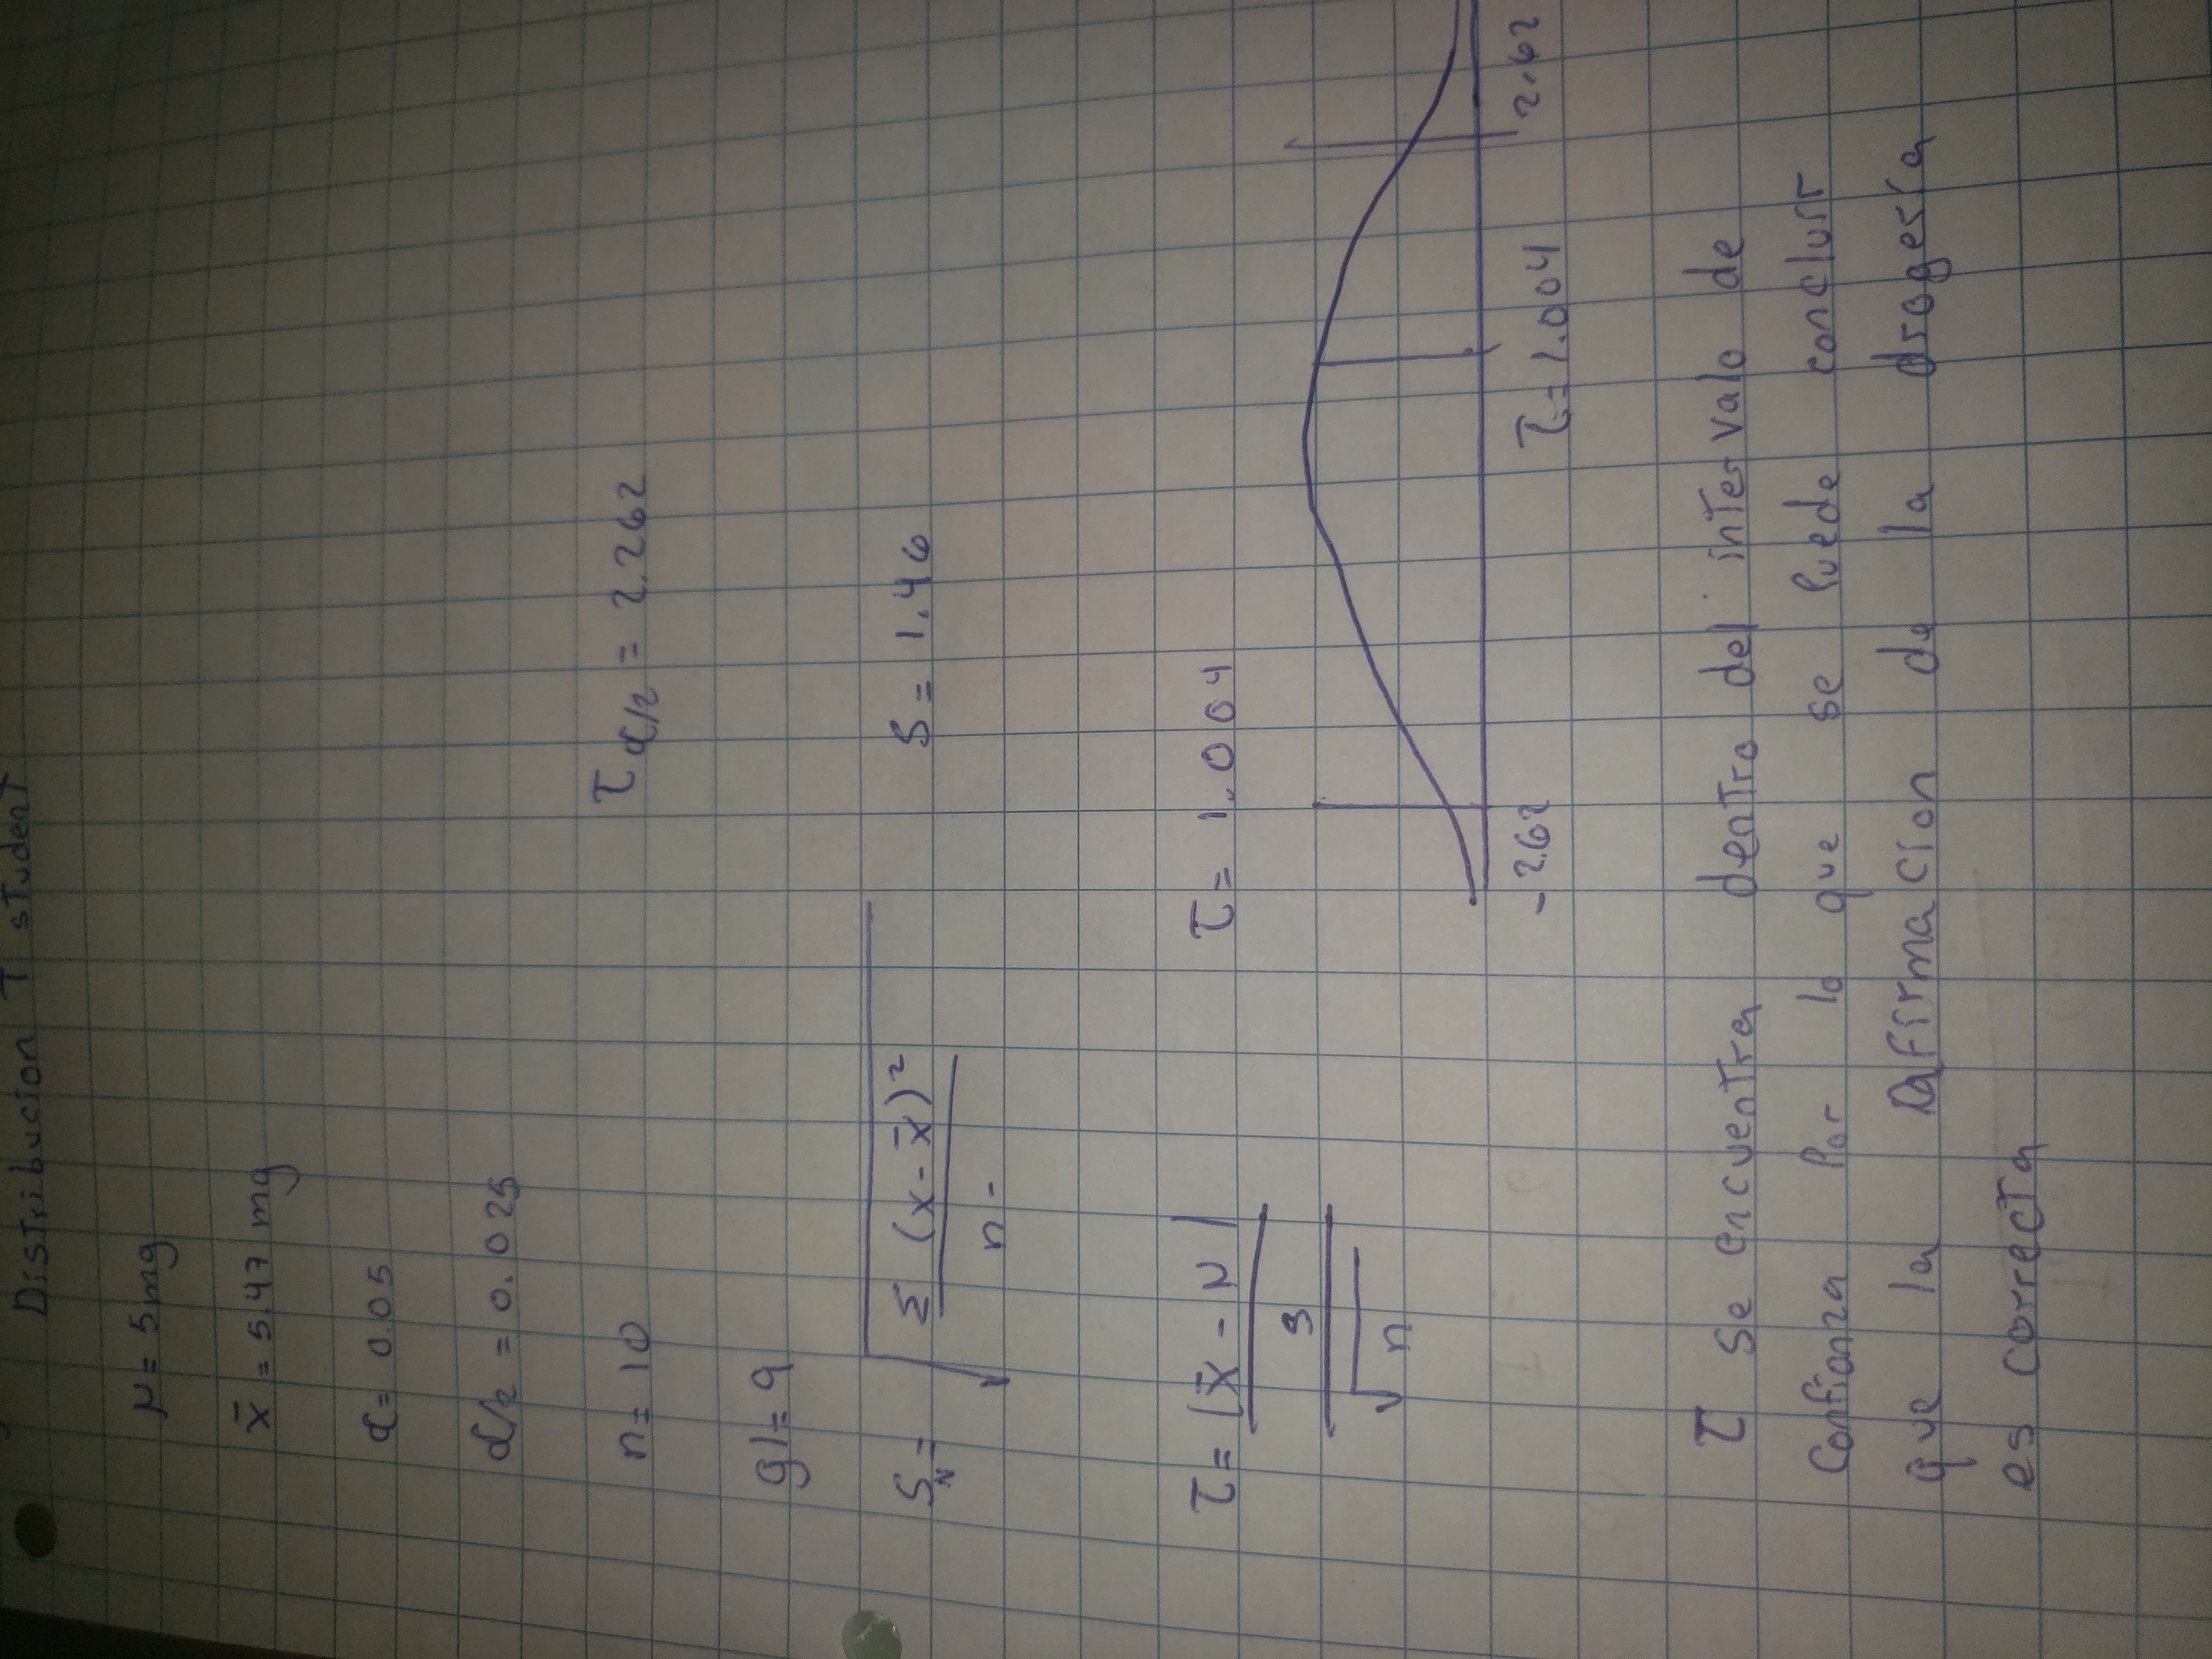 Distribucion T student
μ = 5mg
x̄ = 5.47 mg
α = 0.05
α/2 = 0.025
n = 10
τα/2 = 2.262
gl = 9
SN = √ Σ (x - x̄)²
n -
S = 1.46
τ = |x̄ - μ|
S
√n
τ = 1.004
-2.62
τ = 1.004
2.62
τ se encuentra dentro del intervalo de
Confianza Por lo que se Puede concluir
que la Afirmacion de la drogeria
es correcta